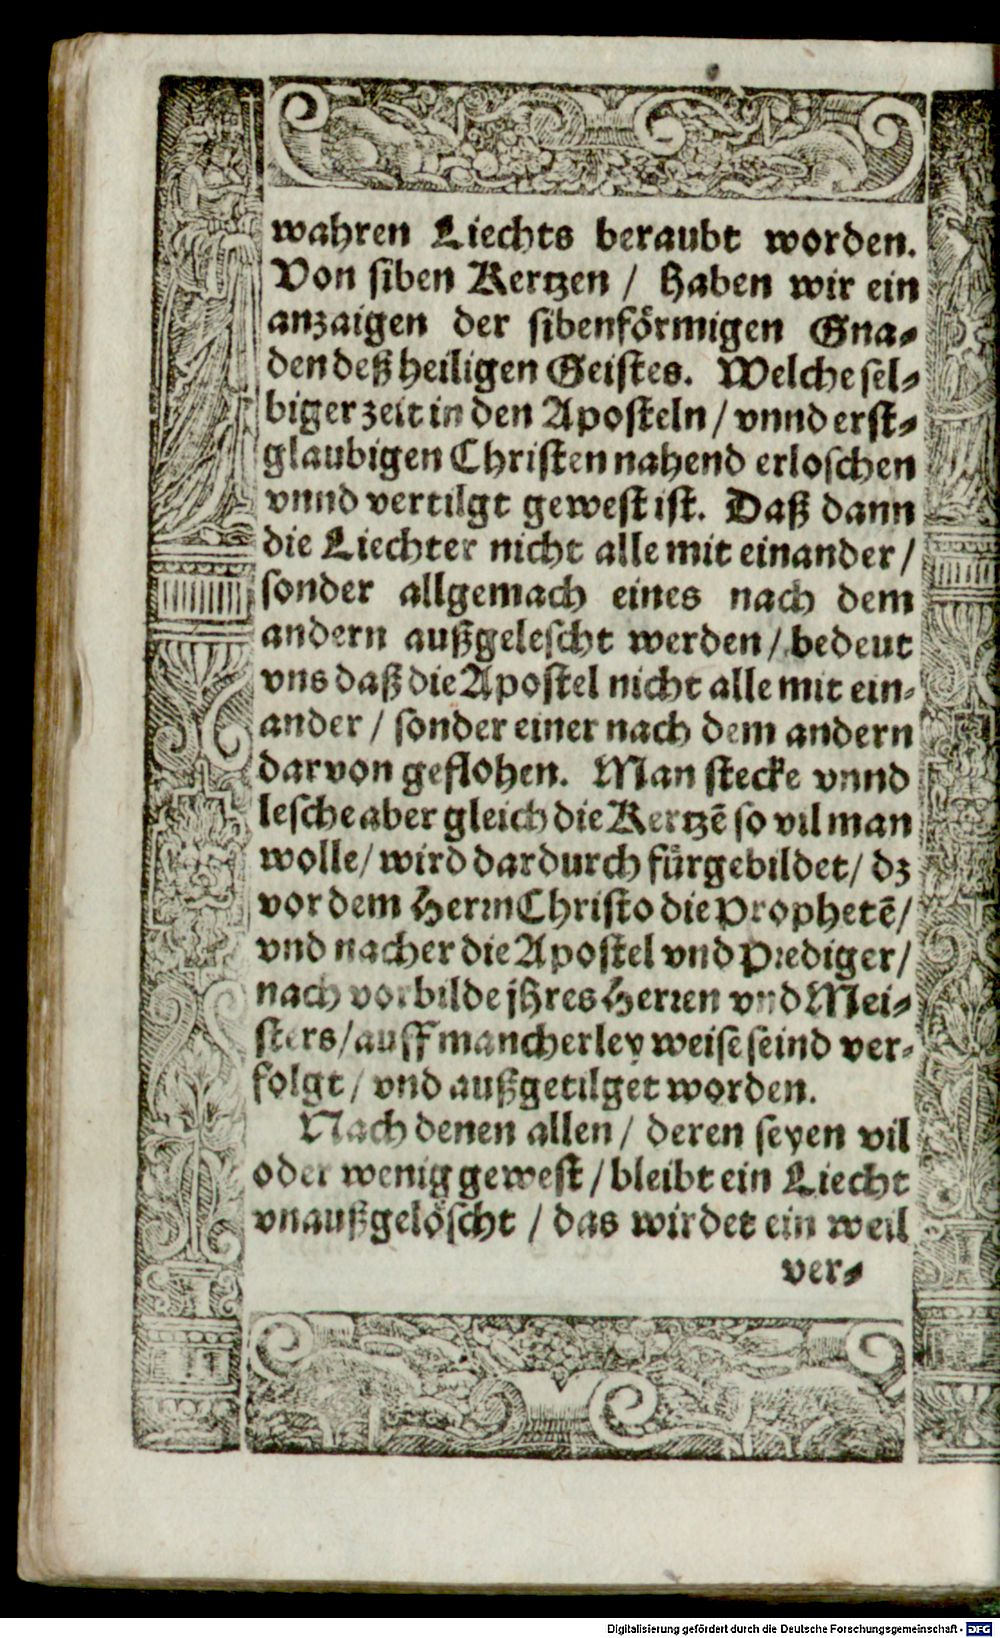 wahren Liechts beraubt worden.
Von siben Kertzen / haben wir ein
anzaigen der sibenförmigen Gna-
den deß heiligen Geistes. Welche sel-
biger zeit in den Aposteln / vnnd erst-
glaubigen Christen nahend erloschen
vnnd vertilgt gewest ist. Daß dann
die Liechter nicht alle mit einander /
sonder allgemach eines nach dem
andern außgelescht werden / bedeut
vns daß die Apostel nicht alle mit ein-
ander / sonder einer nach dem andern
darvon geflohen. Man stecke vnnd
lesche aber gleich die Kertzē so vil man
wolle / wird dardurch fürgebildet / dz
vor dem Herrn Christo die Prophetē /
vnd nacher die Apostel vnd Prediger /
nach vorbilde jhres Herren vnd Mei-
sters / auff mancherley weise seind ver-
folgt / vnd außgetilget worden.
Nach denen allen / deren seyen vil
oder wenig gewest / bleibt ein Liecht
vnaußgelöscht / das wirdet ein weil
ver-
Digitalisierung gefördert durch die Deutsche Forschungsgemeinschaft - DFG